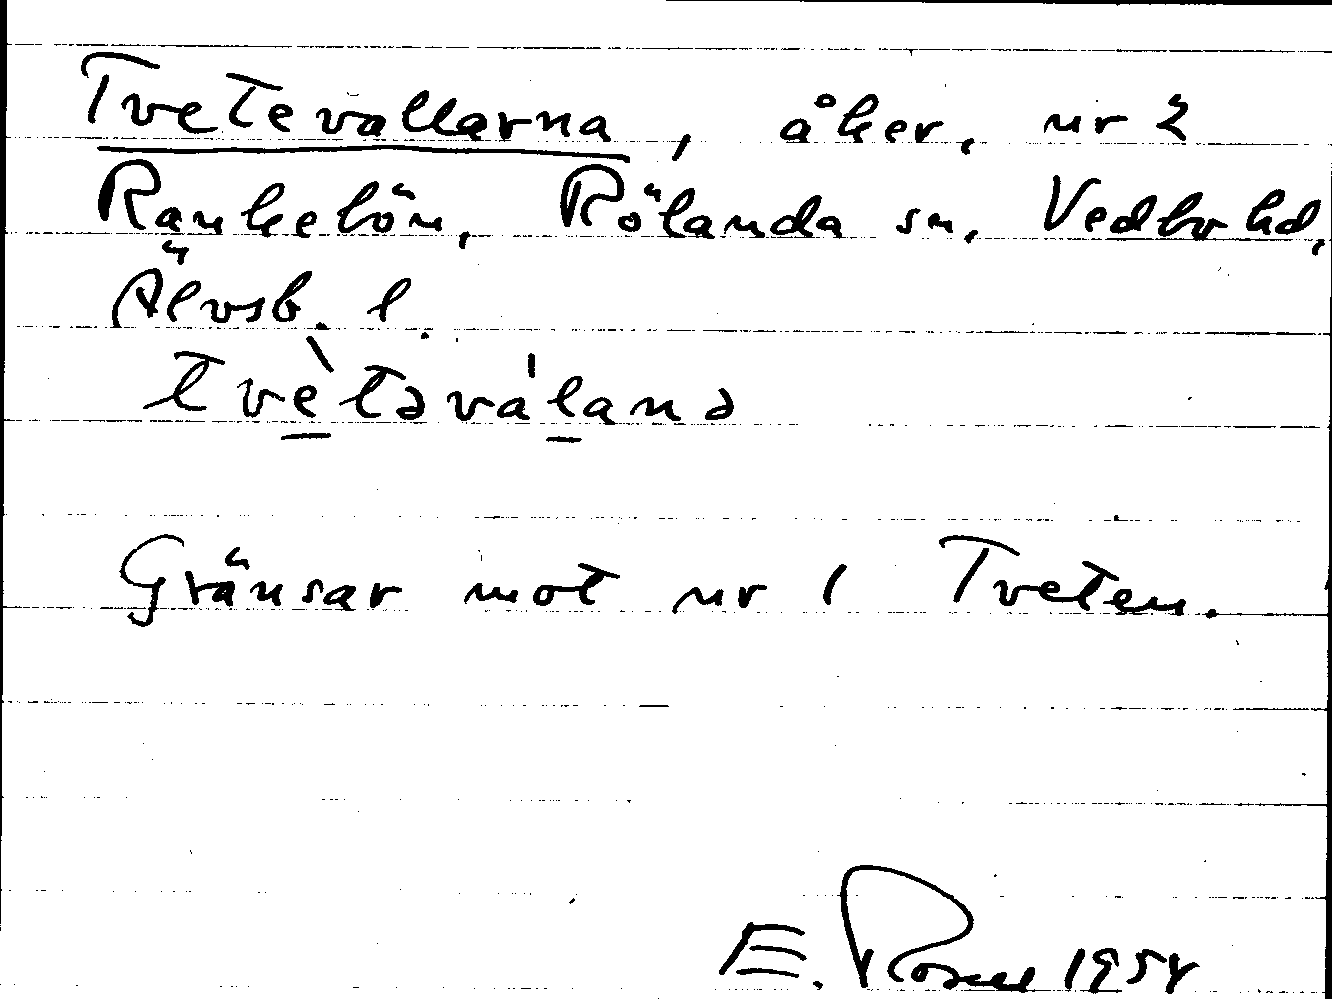 Tvetevallarna, åker, nr 2
Rankebön, Rölanda sn, Vedbo hd,
Älvsb. l.
tvètəvál̠anə
Gränsar mot nr 1 Tveten.
E. Rosell 1954